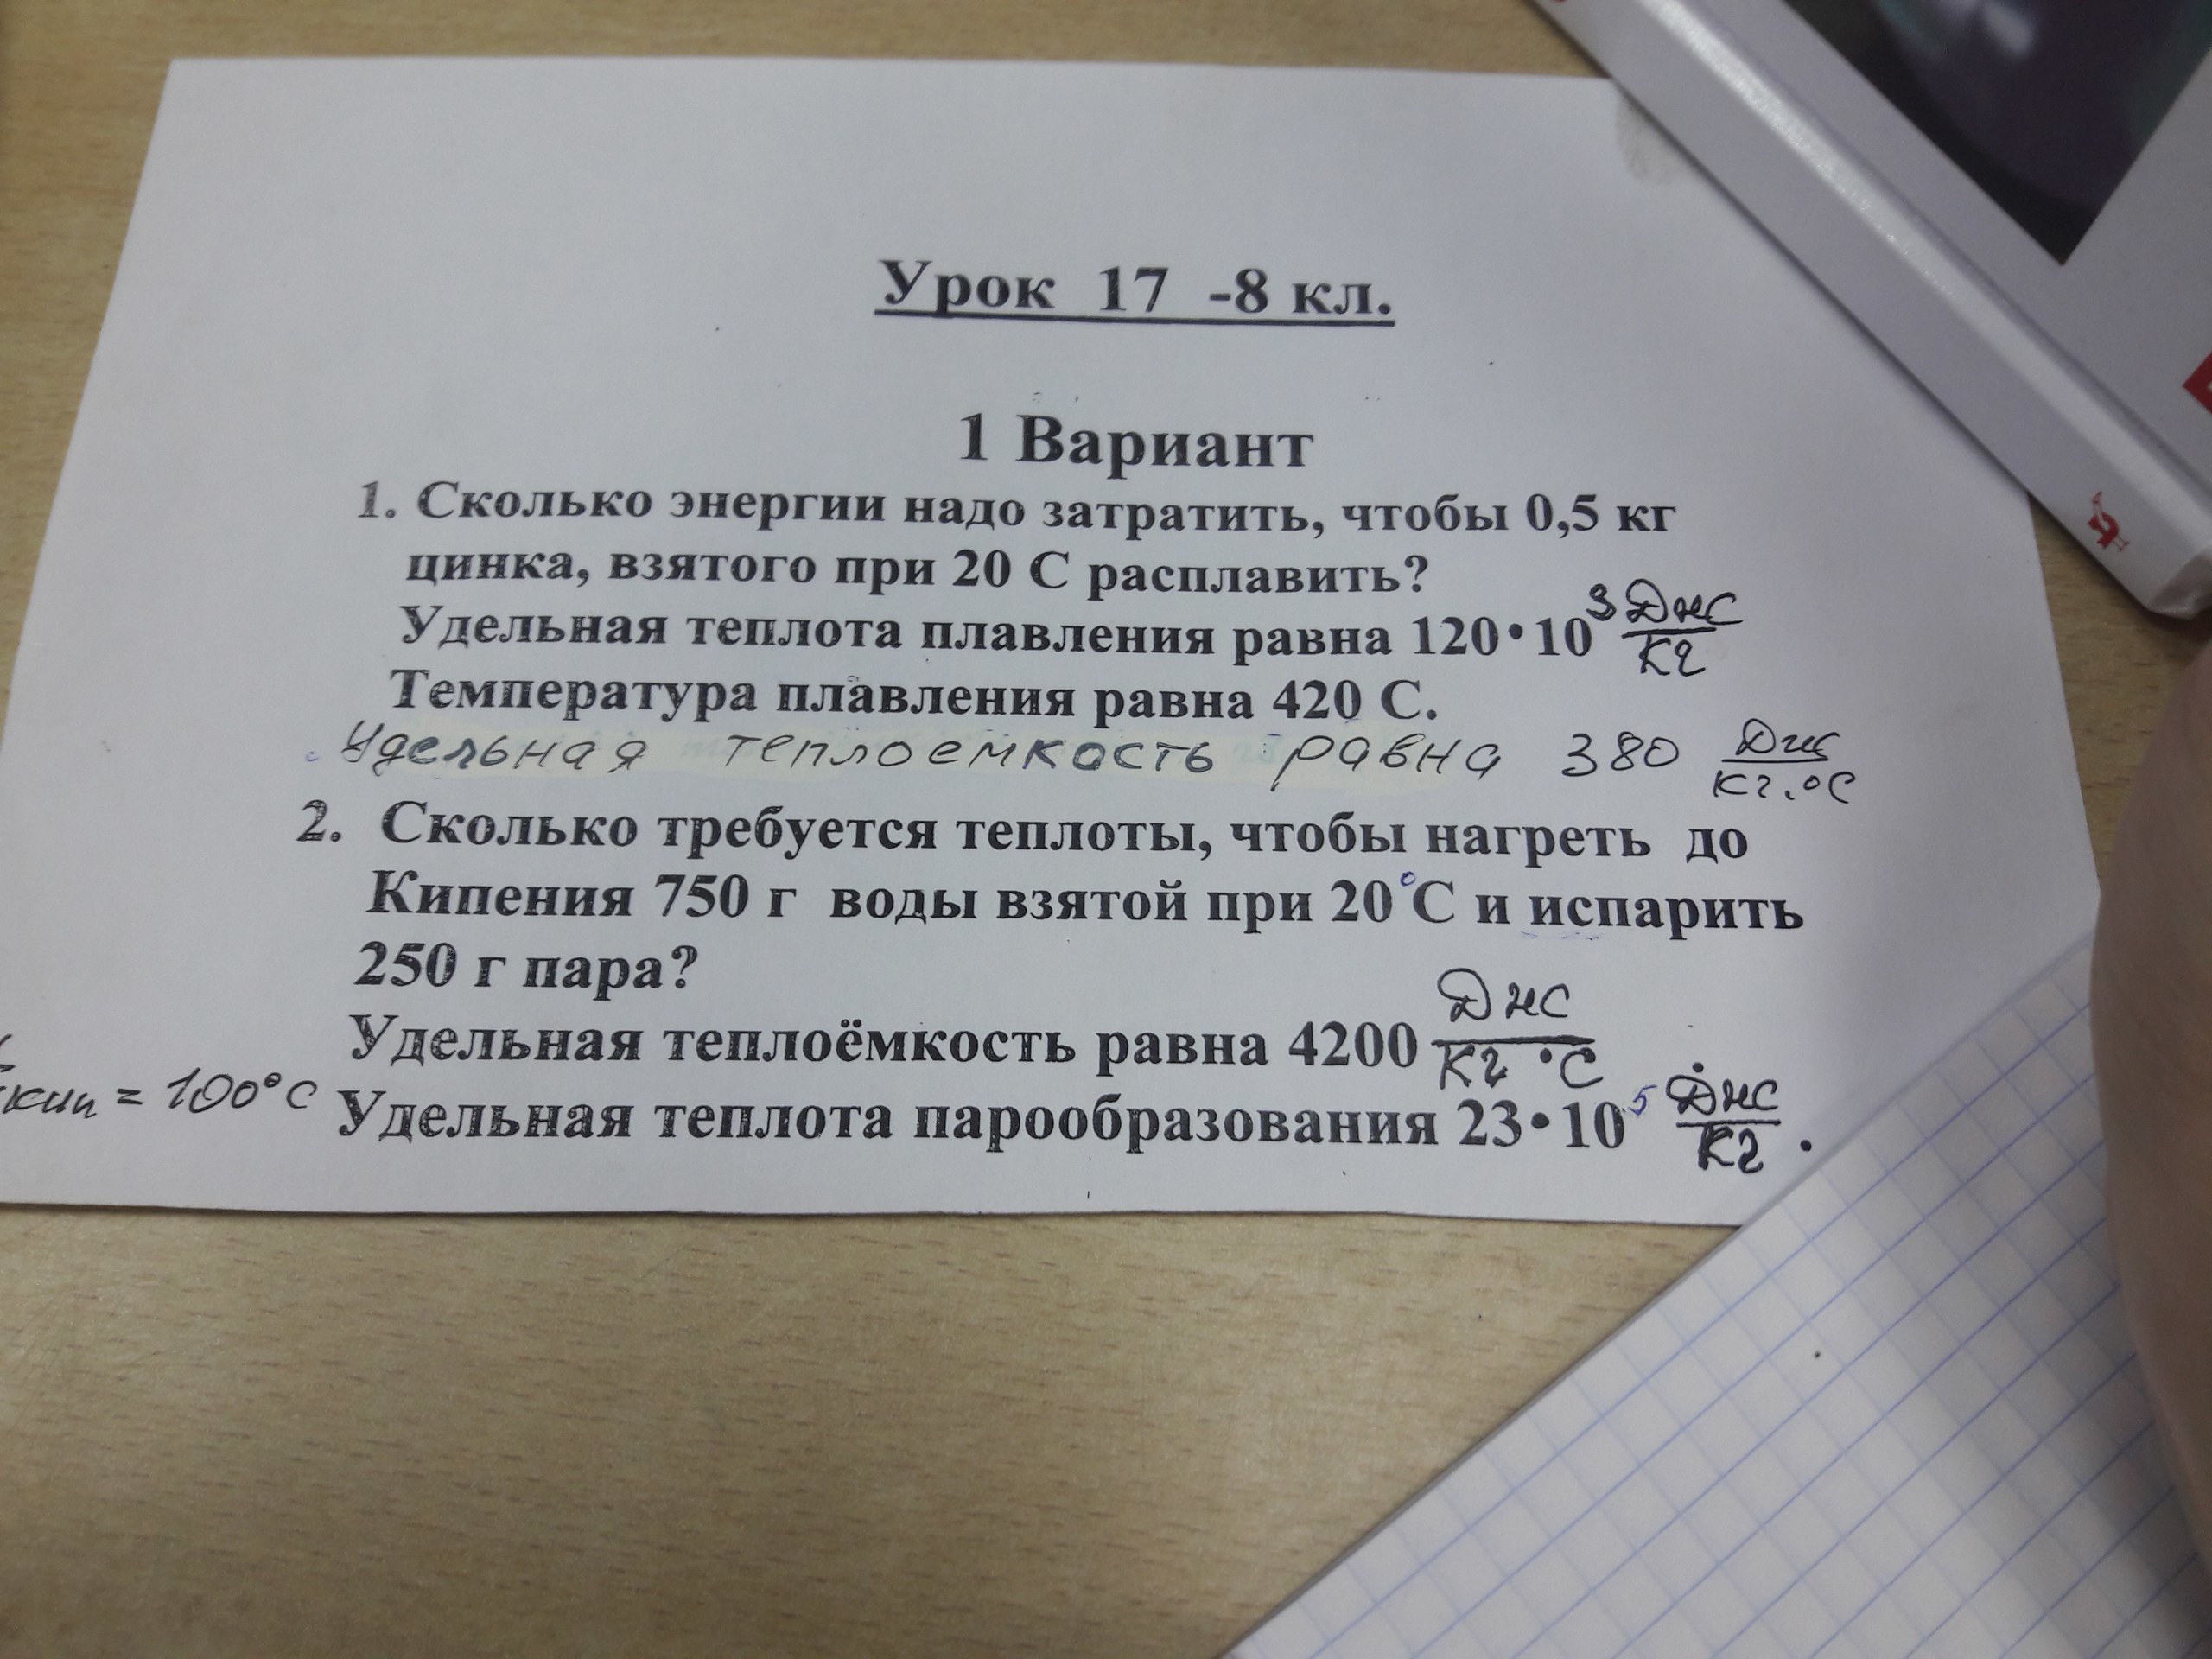 Урок 17 -8 кл.
1 Вариант
1. Сколько энергии надо затратить, чтобы 0,5 кг
цинка, взятого при 20 С расплавить?
Удельная теплота плавления равна 120•10³ Дж/кг
Температура плавления равна 420 С.
Удельная теплоемкость равна 380 Дж/кг.°С
2. Сколько требуется теплоты, чтобы нагреть до
Кипения 750 г воды взятой при 20°С и испарить
250 г пара?
Удельная теплоёмкость равна 4200 Дж/кг °С
кип = 100°С
Удельная теплота парообразования 23•10⁵ Дж/кг.